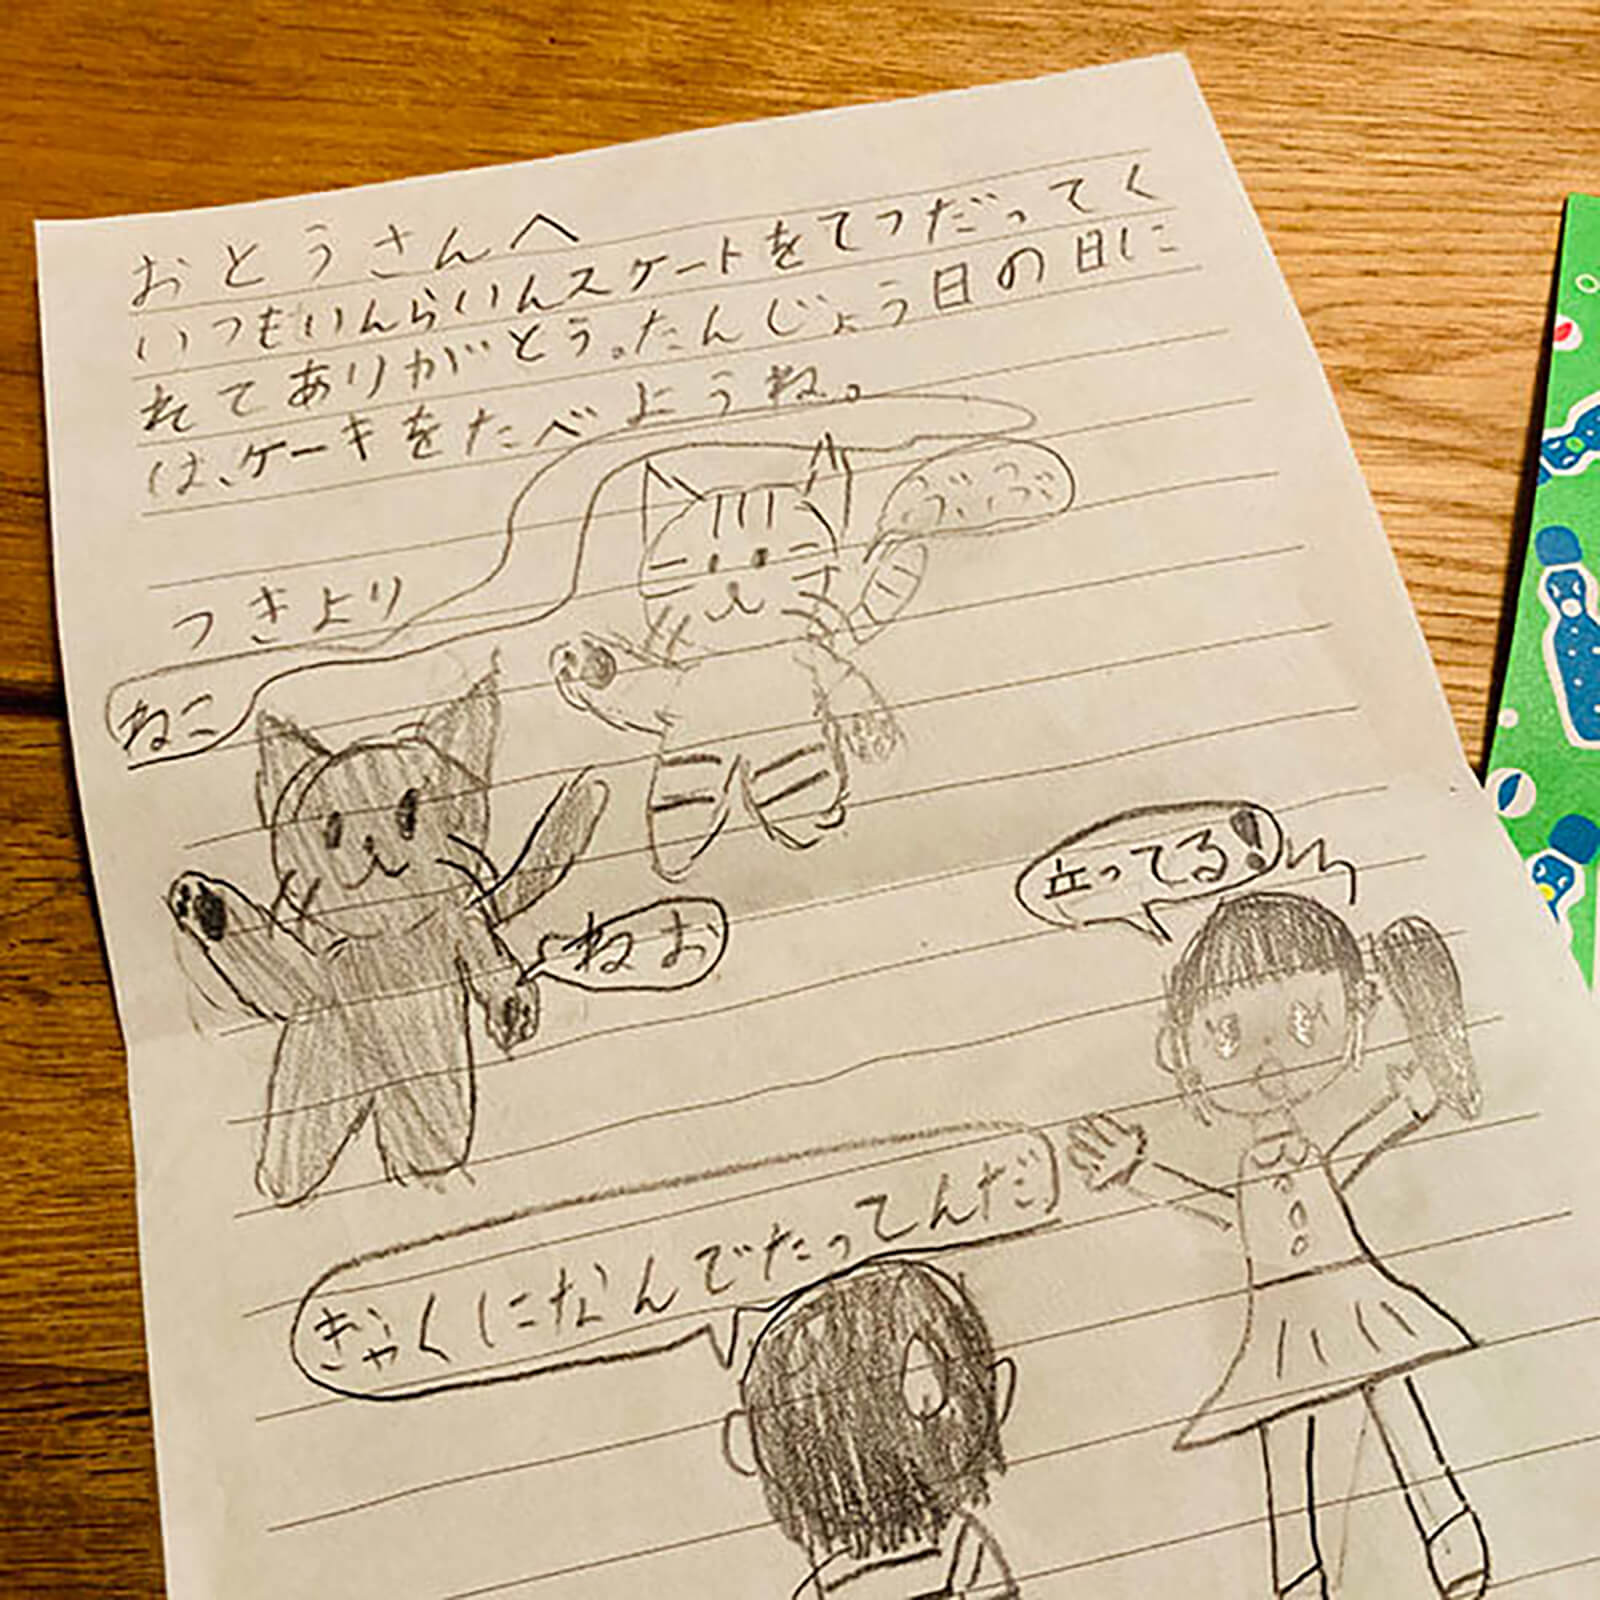 おとうさんへ
いつもいんらいんスケートをてつだってく
れてありがとう。たんじょう日の日に
は、ケーキをたべようね。
つきより
ねこ
ねお
立ってる!
きゃくになんでたってんだ